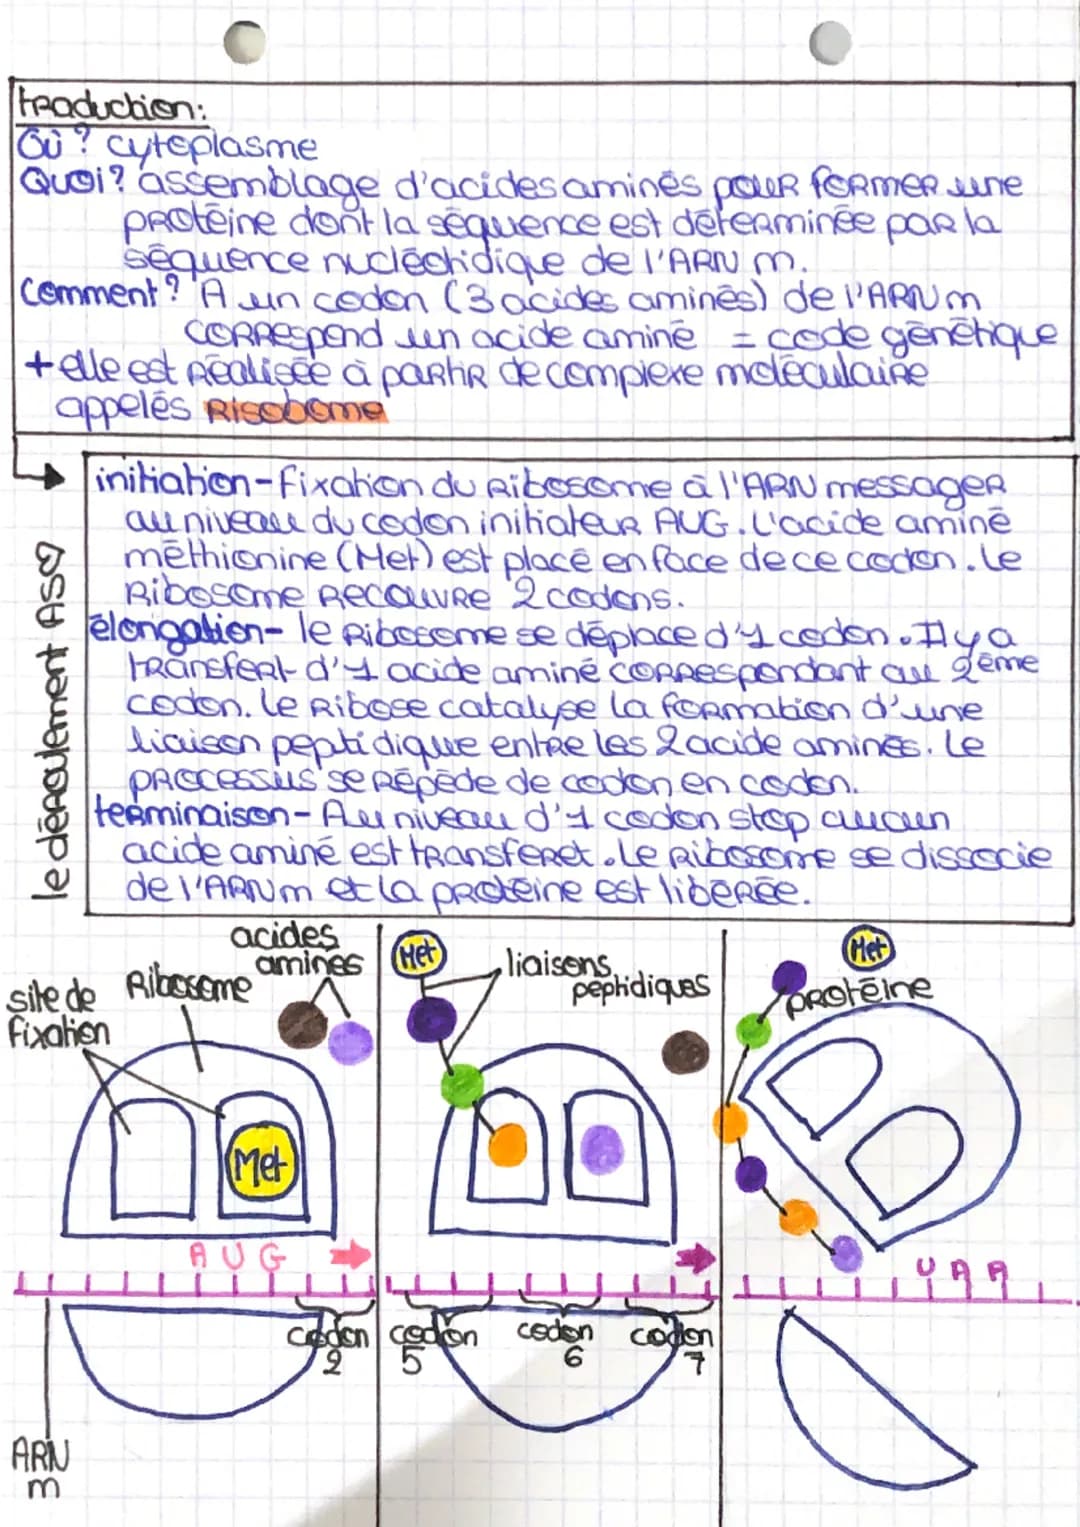 traduction:
Où? cytoplasme
Quoi? assemblage d'acides aminés pour former une
protéine dont la séquence est déterminée par la
séquence nucléotidique de l'ARN m.
Comment? A un codon (3 acides aminés) de l'ARN m
correspond un acide aminé = code génétique
+ elle est réalisée à partir de complexe moléculaire
appelés Risobome
le déroulement ASO
initiation - fixation du Ribosome à l'ARN messager
au niveau du codon initiateur AUG. L'acide aminé
méthionine (Met) est placé en face de ce codon. Le
Ribosome recouvre 2 codons.
élongation - le Ribosome se déplace d'1 codon. Il y a
transfert d'1 acide aminé correspondant au 2ème
codon. Le Ribose catalyse la formation d'une
liaison peptidique entre les 2 acide aminés. Le
processus se répède de codon en codon.
terminaison - Au niveau d'1 codon stop aucun
acide aminé est transferet. Le Ribosome se dissocie
de l'ARNm et la protéine est libérée.
site de
fixation
Ribosome
acides
aminés
Met
AUG
codon
2
ARN
m
Met
liaisons
peptidiques
codon
5
codon
6
codon
7
Met
protéine
UAA